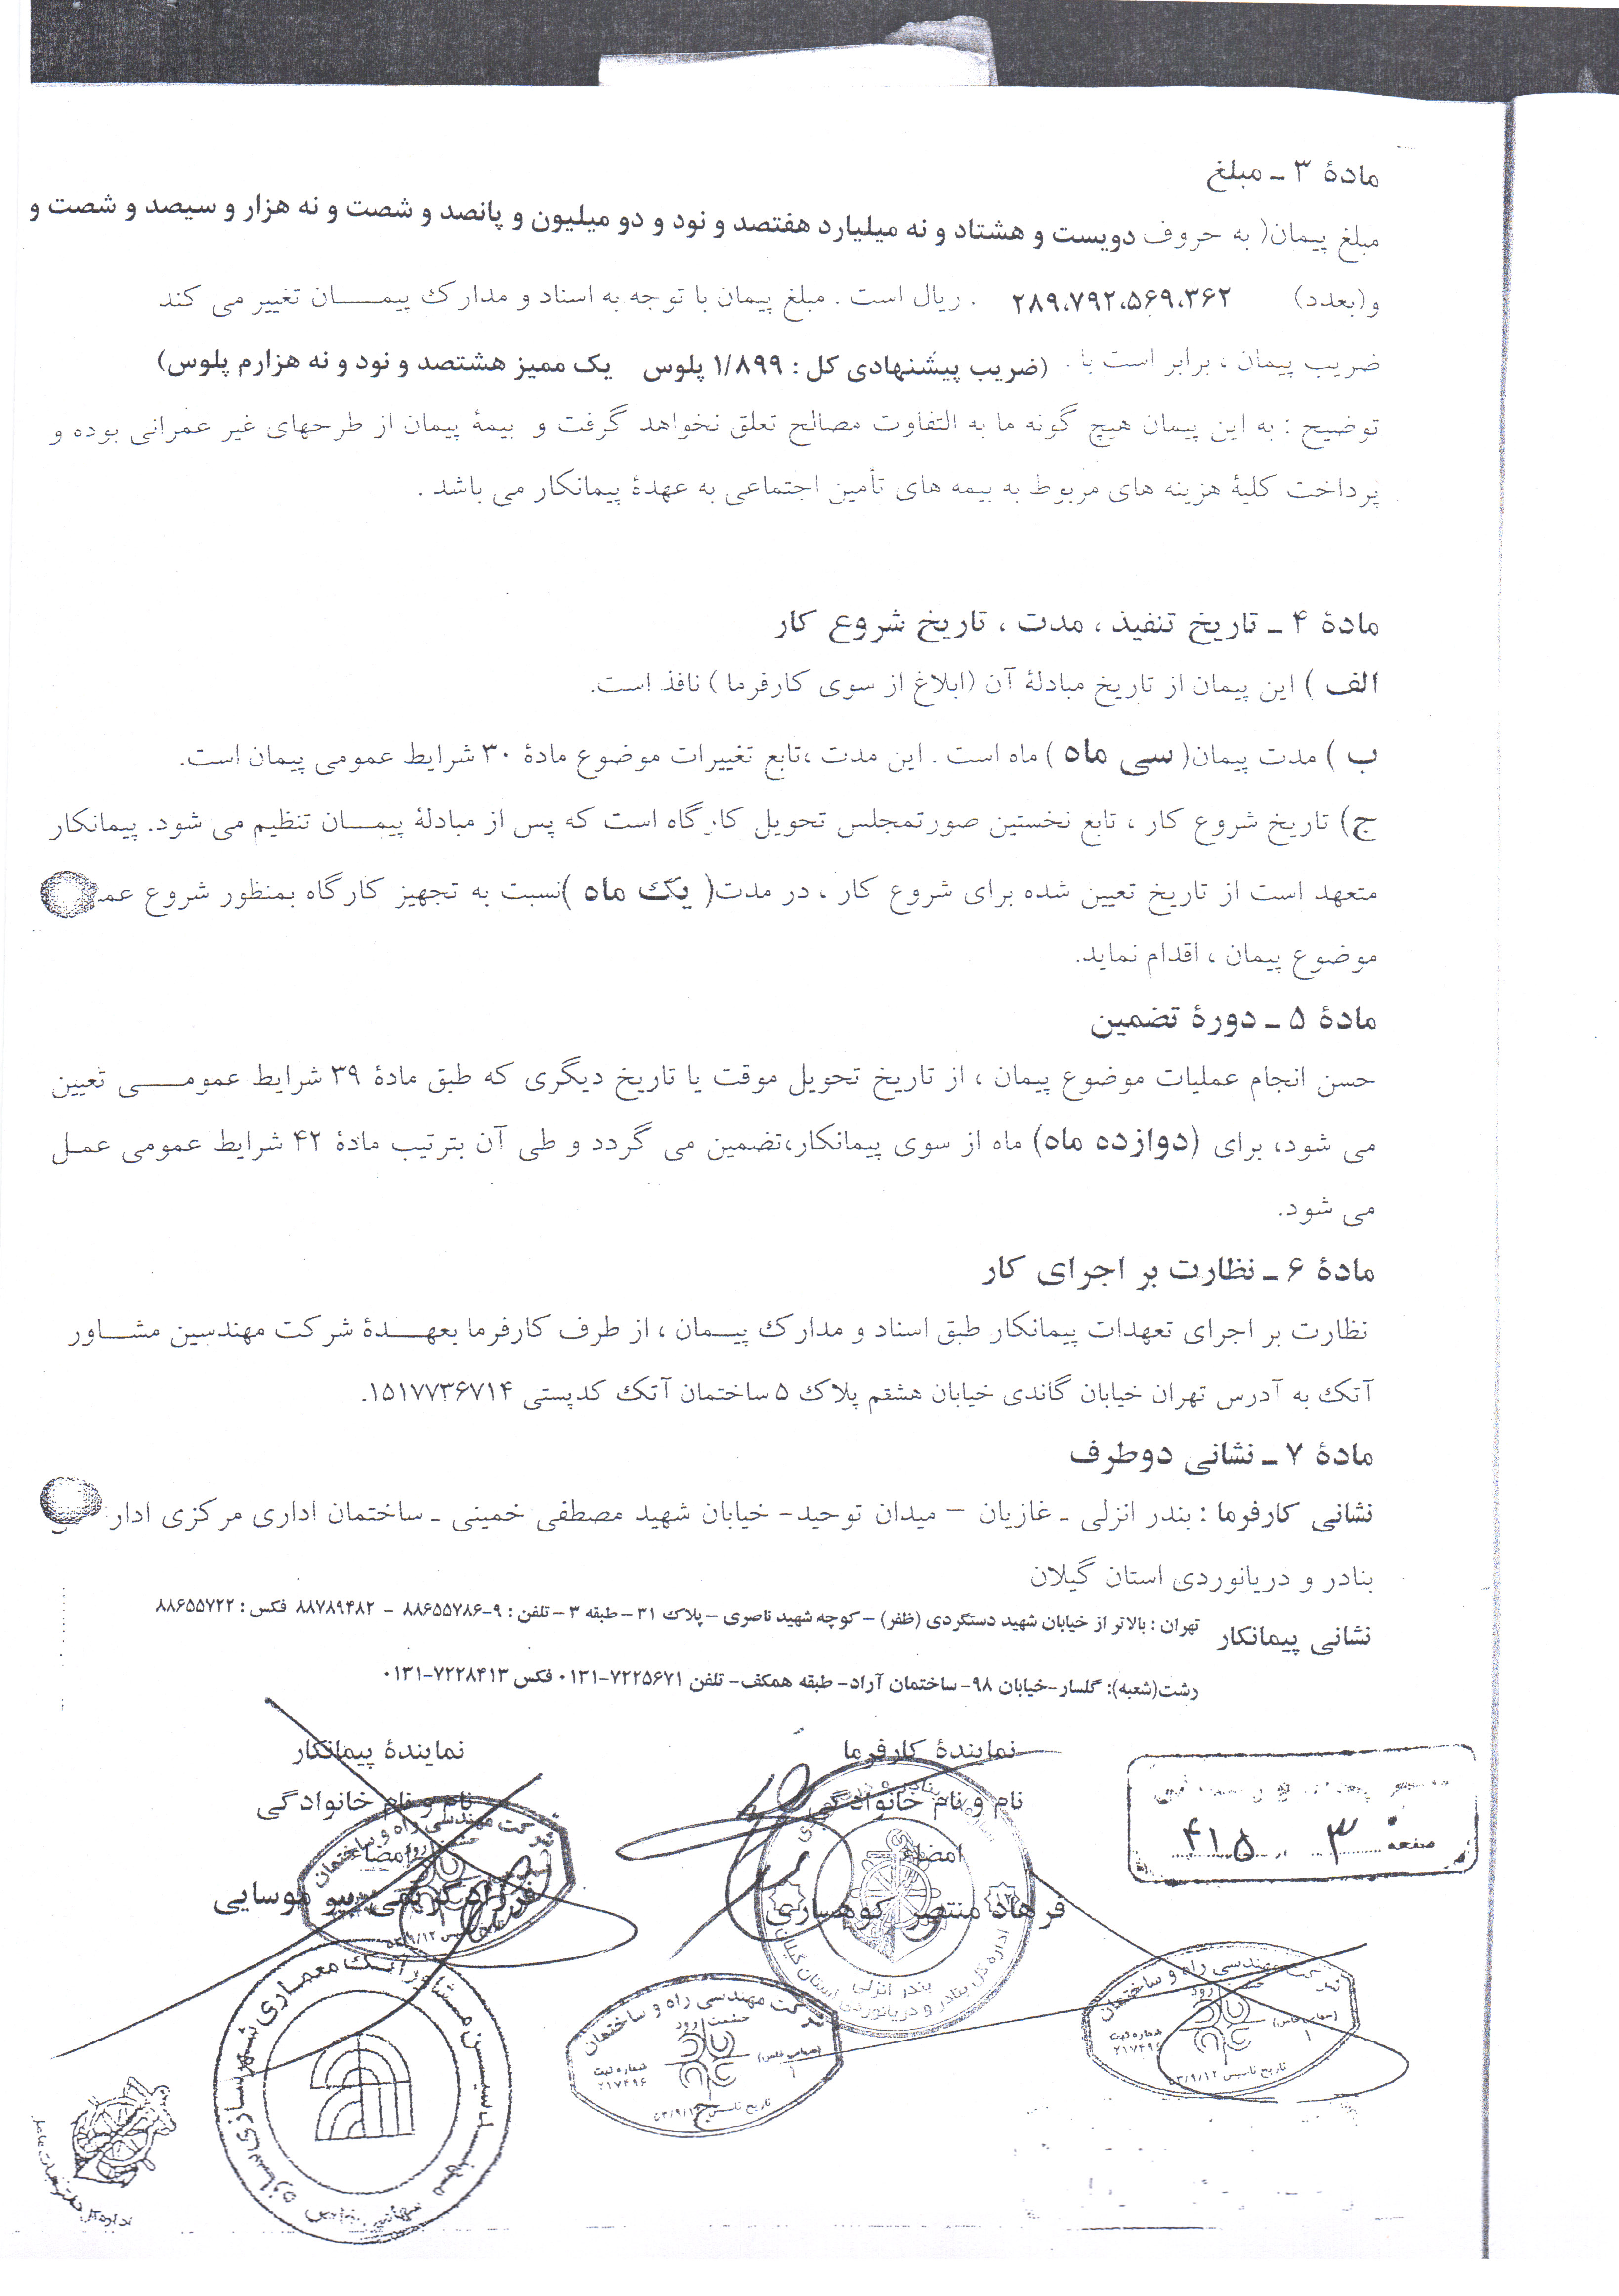 مادهٔ ۳ ـ مبلغ
مبلغ پیمان( به حروف دویست و هشتاد و نه میلیارد هفتصد و نود و دو میلیون و پانصد و شصت و نه هزار و سیصد و شصت و
و(بعدد) ۲۸۹،۷۹۲،۵۶۹،۳۶۲ . ریال است . مبلغ پیمان با توجه به اسناد و مدارک پیمـــــان تغییر می کند
ضریب پیمان ، برابر است با . (ضریب پیشنهادی کل : ۱/۸۹۹ پلوس یک ممیز هشتصد و نود و نه هزارم پلوس)
توضیح : به این پیمان هیچ گونه ما به التفاوت مصالح تعلق نخواهد گرفت و بیمهٔ پیمان از طرحهای غیر عمرانی بوده و
پرداخت کلیهٔ هزینه های مربوط به بیمه های تأمین اجتماعی به عهدهٔ پیمانکار می باشد .
مادهٔ ۴ ـ تاریخ تنفیذ ، مدت ، تاریخ شروع کار
الف ) این پیمان از تاریخ مبادلهٔ آن (ابلاغ از سوی کارفرما ) نافذ است.
ب ) مدت پیمان( سی ماه ) ماه است . این مدت ،تابع تغییرات موضوع مادهٔ ۳۰ شرایط عمومی پیمان است.
ج) تاریخ شروع کار ، تابع نخستین صورتمجلس تحویل کارگاه است که پس از مبادلهٔ پیمـــان تنظیم می شود. پیمانکار
متعهد است از تاریخ تعیین شده برای شروع کار ، در مدت( یک ماه )نسبت به تجهیز کارگاه بمنظور شروع عمـ
موضوع پیمان ، اقدام نماید.
مادهٔ ۵ ـ دورهٔ تضمین
حسن انجام عملیات موضوع پیمان ، از تاریخ تحویل موقت یا تاریخ دیگری که طبق مادهٔ ۳۹ شرایط عمومـــــی تعیین
می شود، برای (دوازده ماه) ماه از سوی پیمانکار،تضمین می گردد و طی آن بترتیب مادهٔ ۴۲ شرایط عمومی عمـل
می شود.
مادهٔ ۶ ـ نظارت بر اجرای کار
نظارت بر اجرای تعهدات پیمانکار طبق اسناد و مدارک پیـــمان ، از طرف کارفرما بعهـــدهٔ شرکت مهندسین مشـــاور
آتک به آدرس تهران خیابان گاندی خیابان هشتم پلاک ۵ ساختمان آتک کدپستی ۱۵۱۷۷۳۶۷۱۴.
مادهٔ ۷ ـ نشانی دوطرف
نشانی کارفرما : بندر انزلی ـ غازیان – میدان توحید- خیابان شهید مصطفی خمینی ـ ساختمان اداری مرکزی ادار
بنادر و دریانوردی استان گیلان
نشانی پیمانکار تهران : بالاتر از خیابان شهید دستگردی (ظفر) – کوچه شهید ناصری – پلاک ۳۱ – طبقه ۳ – تلفن : ۹-۸۸۶۵۵۷۸۶ - ۸۸۷۸۹۴۸۲ فکس : ۸۸۶۵۵۷۲۲
رشت(شعبه): گلسار-خیابان ۹۸- ساختمان آراد- طبقه همکف- تلفن ۷۲۲۵۶۷۱-۰۱۳۱ فکس ۷۲۲۸۴۱۳-۰۱۳۱
نمایندهٔ کارفرما
نام و نام خانوادگی
امضاء
فرهاد منتصر کوهساری
نمایندهٔ پیمانکار
نام و نام خانوادگی
امضا
صفحه ۳ از ۴۱۵
اداره کل بنادر و دریانوردی استان گیلان
بندر انزلی
شرکت مهندسی راه و ساختمان
تاریخ تاسیس ۵۳/۹/۱۲
شرکت مهندسی راه و ساختمان
حشمت رود
(سهامی خاص)
۱
شماره ثبت
۲۱۷۴۹۶
تاریخ تاسیس ۵۳/۹/۱۲
شرکت مهندسی راه و ساختمان
حشمت رود
(سهامی خاص)
۱
شماره ثبت
۲۱۷۴۹۶
تاریخ تاسیس ۵۳/۹/۱۲
مهندسین مشاور آتک معماری شهرسازی سازه
سهامی خاص